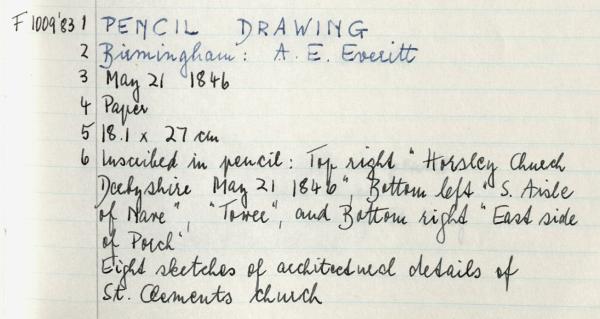 F1009'83 1 PENCIL DRAWING
2 Birmingham: A. E. Everitt
3 May 21 1846
4 Paper
5 18.1 x 27 cm
6 Inscribed in pencil: Top right "Horsley Church
Derbyshire May 21 1846", Bottom left "S. Aisle
of Nave", "Tower", and Bottom right "East side
of Porch"
Eight sketches of architectural details of
St. Clements church